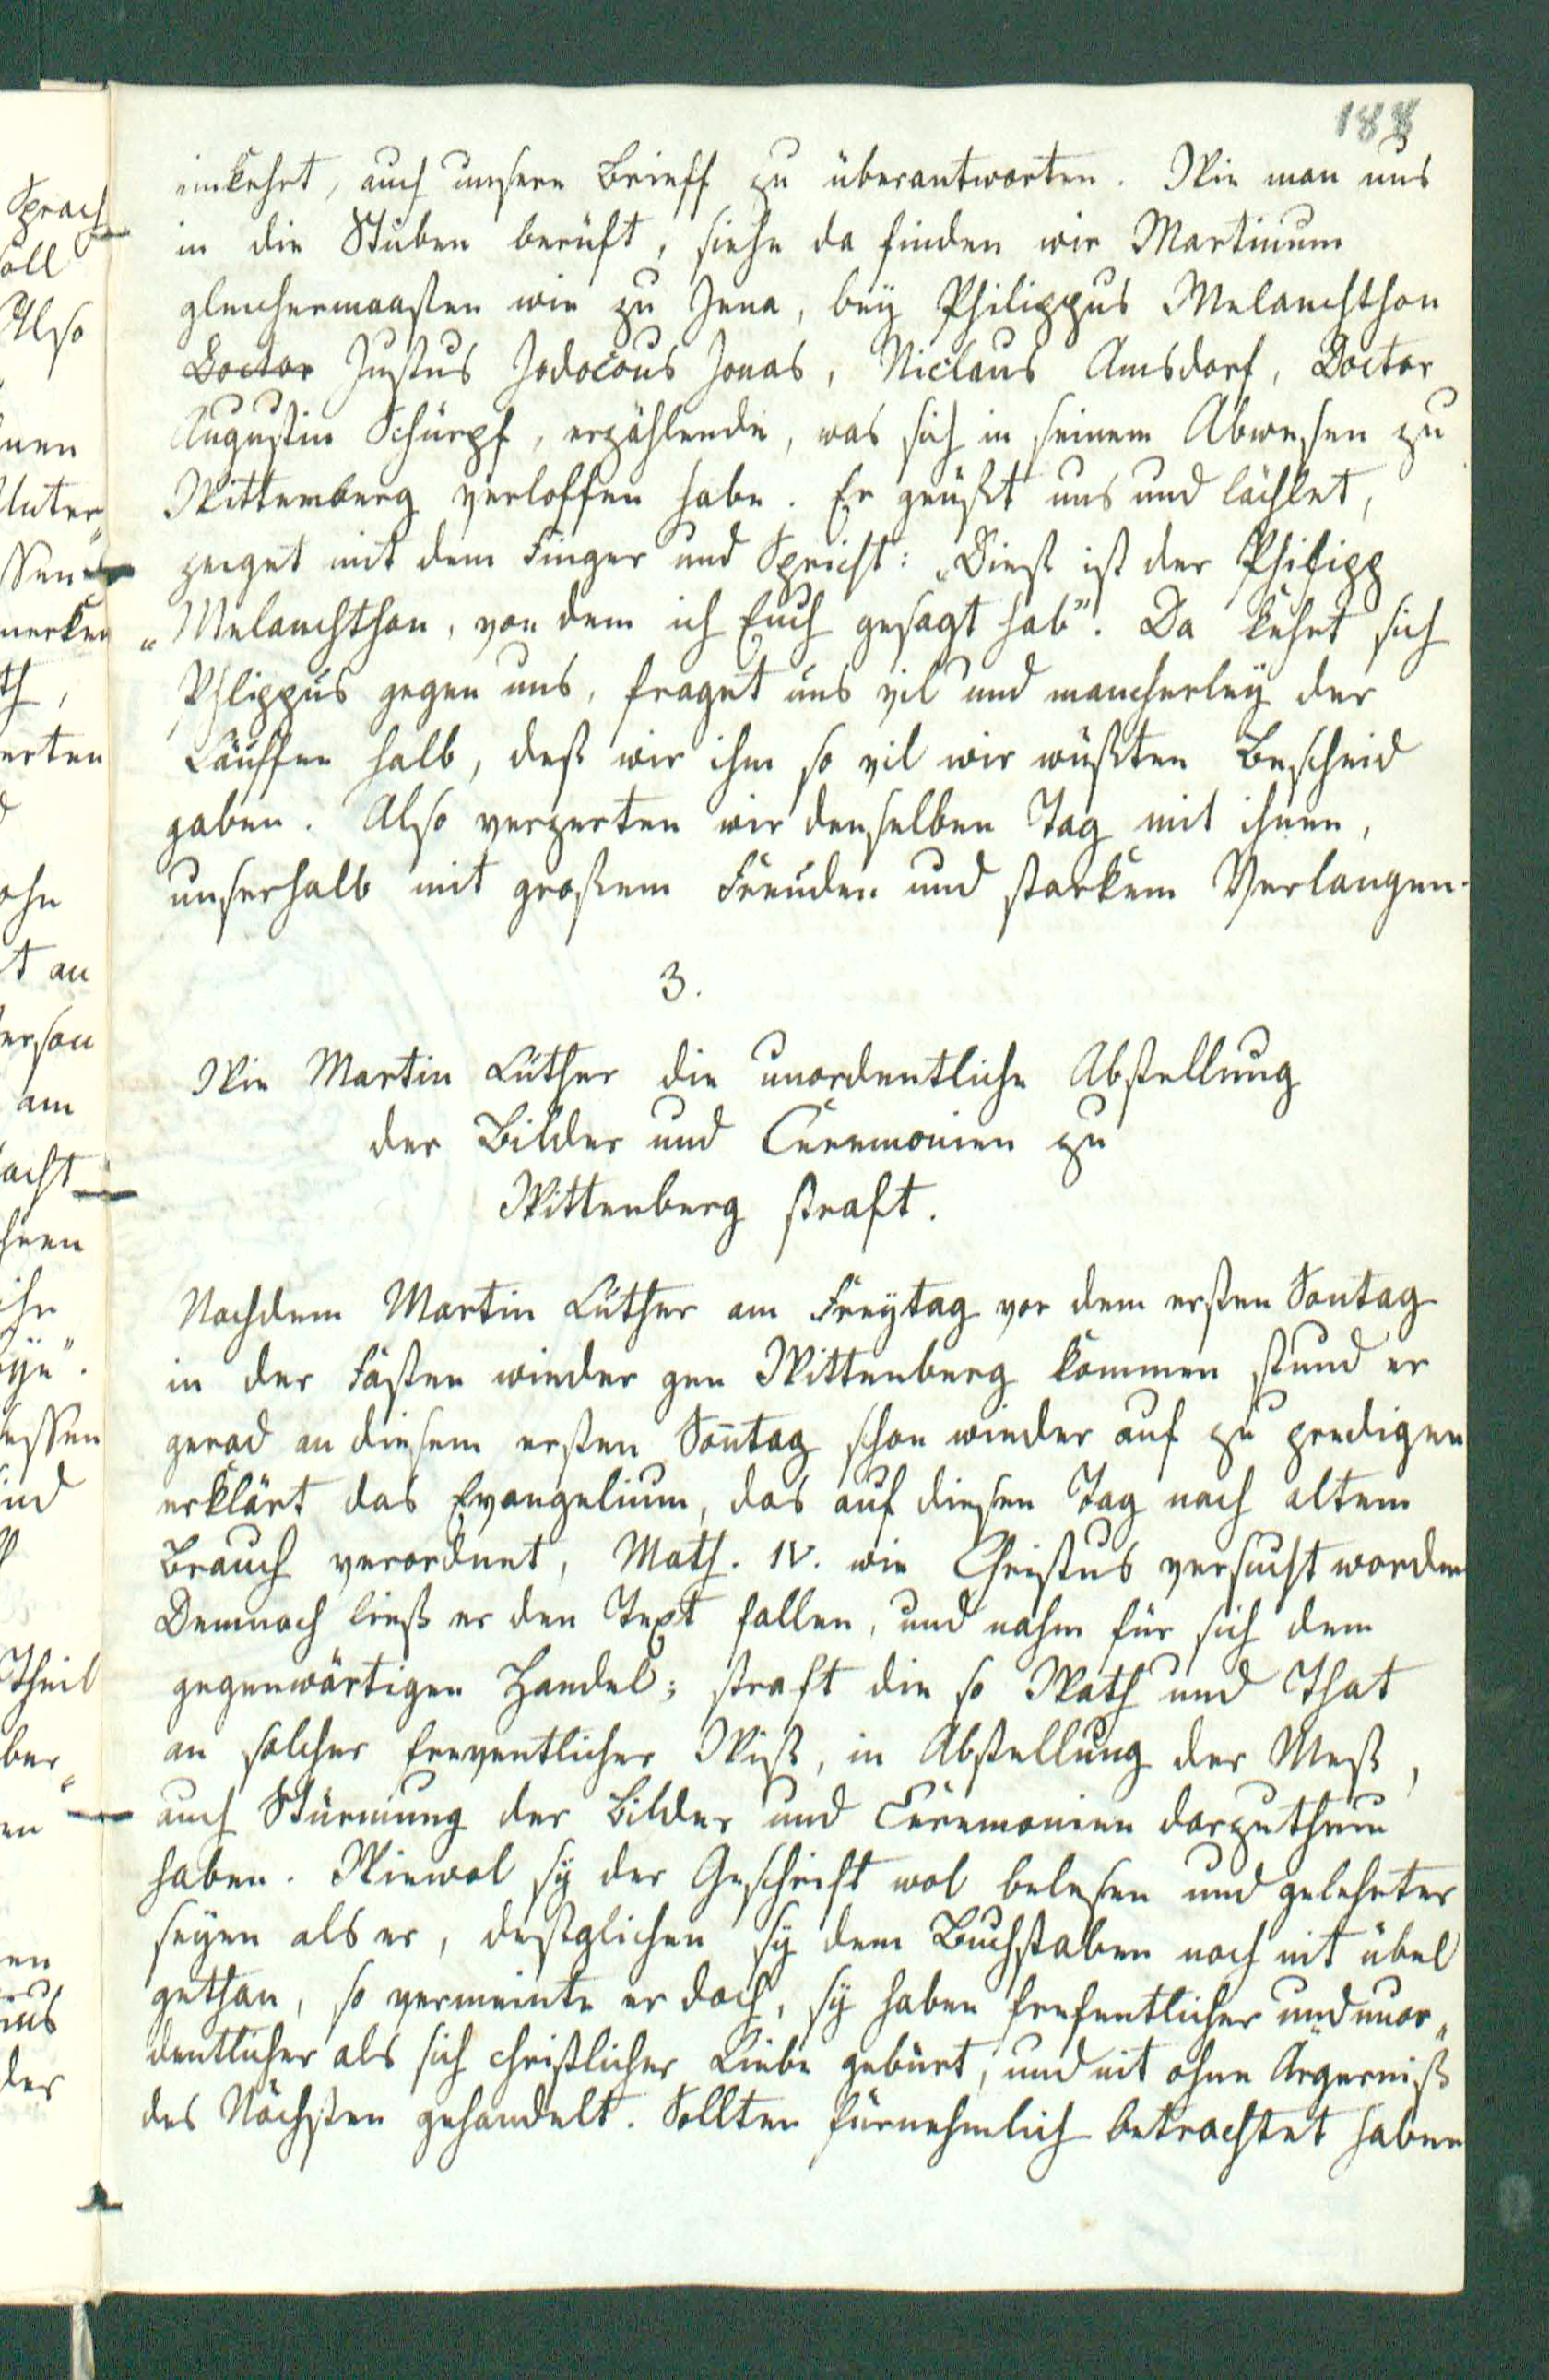 188
einkehrt, auch unsere Brieff zu überantworten. Wie man uns
in die Stuben berüft, siehe da finden wir Martinum
gleichermaasten wie zu Jena, bey Philippus Melanchthon
Doctor Justus Jodocous Jonas, Niclaus Amsdorf, Doctor
Augustin Schürpf, erzählende, was sich in seinem Abwesen zu
Wittemberg verloffen habe. Er grüßt uns und lächlet,
zeiget mit dem Finger und Spricht: „Dieß ist der Philipp
„Melanchthon, von dem ich Euch gesagt hab". Da kehrt sich
Phlippus gegen uns, fraget uns vil und mancherley der
Läuffen halb, deß wir ihm so vil wir wüßten Bescheid
gaben. Also verzerten wir denselben Tag mit ihnen,
unserhalb mit großem Freuden und starkem Verlangen.
3.
Wie Martin Luther die unordentliche Abstellung
der Bilder und Ceremonien zu
Wittenberg straft.
Nachdem Martin Luther am Freytag vor dem ersten Sontag
in der Fasten wieder gen Wittenberg kommen stund er
gerad an diesem ersten Son̄tag schon wieder auf zu predigen
erklärt das Evangelium, das auf diesen Tag nach altem
Brauch verordnet, Math. IV. wie Christus versucht worden
Demnach ließ er den Text fallen, und nahm für sich dem
gegenwärtigen Handel; straft die so Rath und That
an solcher freventlicher Wiß, in Abstellung der Meß,
auch Stürmung der Bilder und Ceremonien darzuthun
haben. Wiewol sy der Geschrift wol belesen und gelehrter
seyen als er, deßglichen sy dem Buchstaben nach nit übel
gethan, so vermeinte er doch, sy haben frefentlicher und unor„
dentlicher als sich christlicher Liebe gebürt, und nit ohne Ärgerniß
des Nächsten gehandelt. Sollten fürnehmlich betrachtet haben